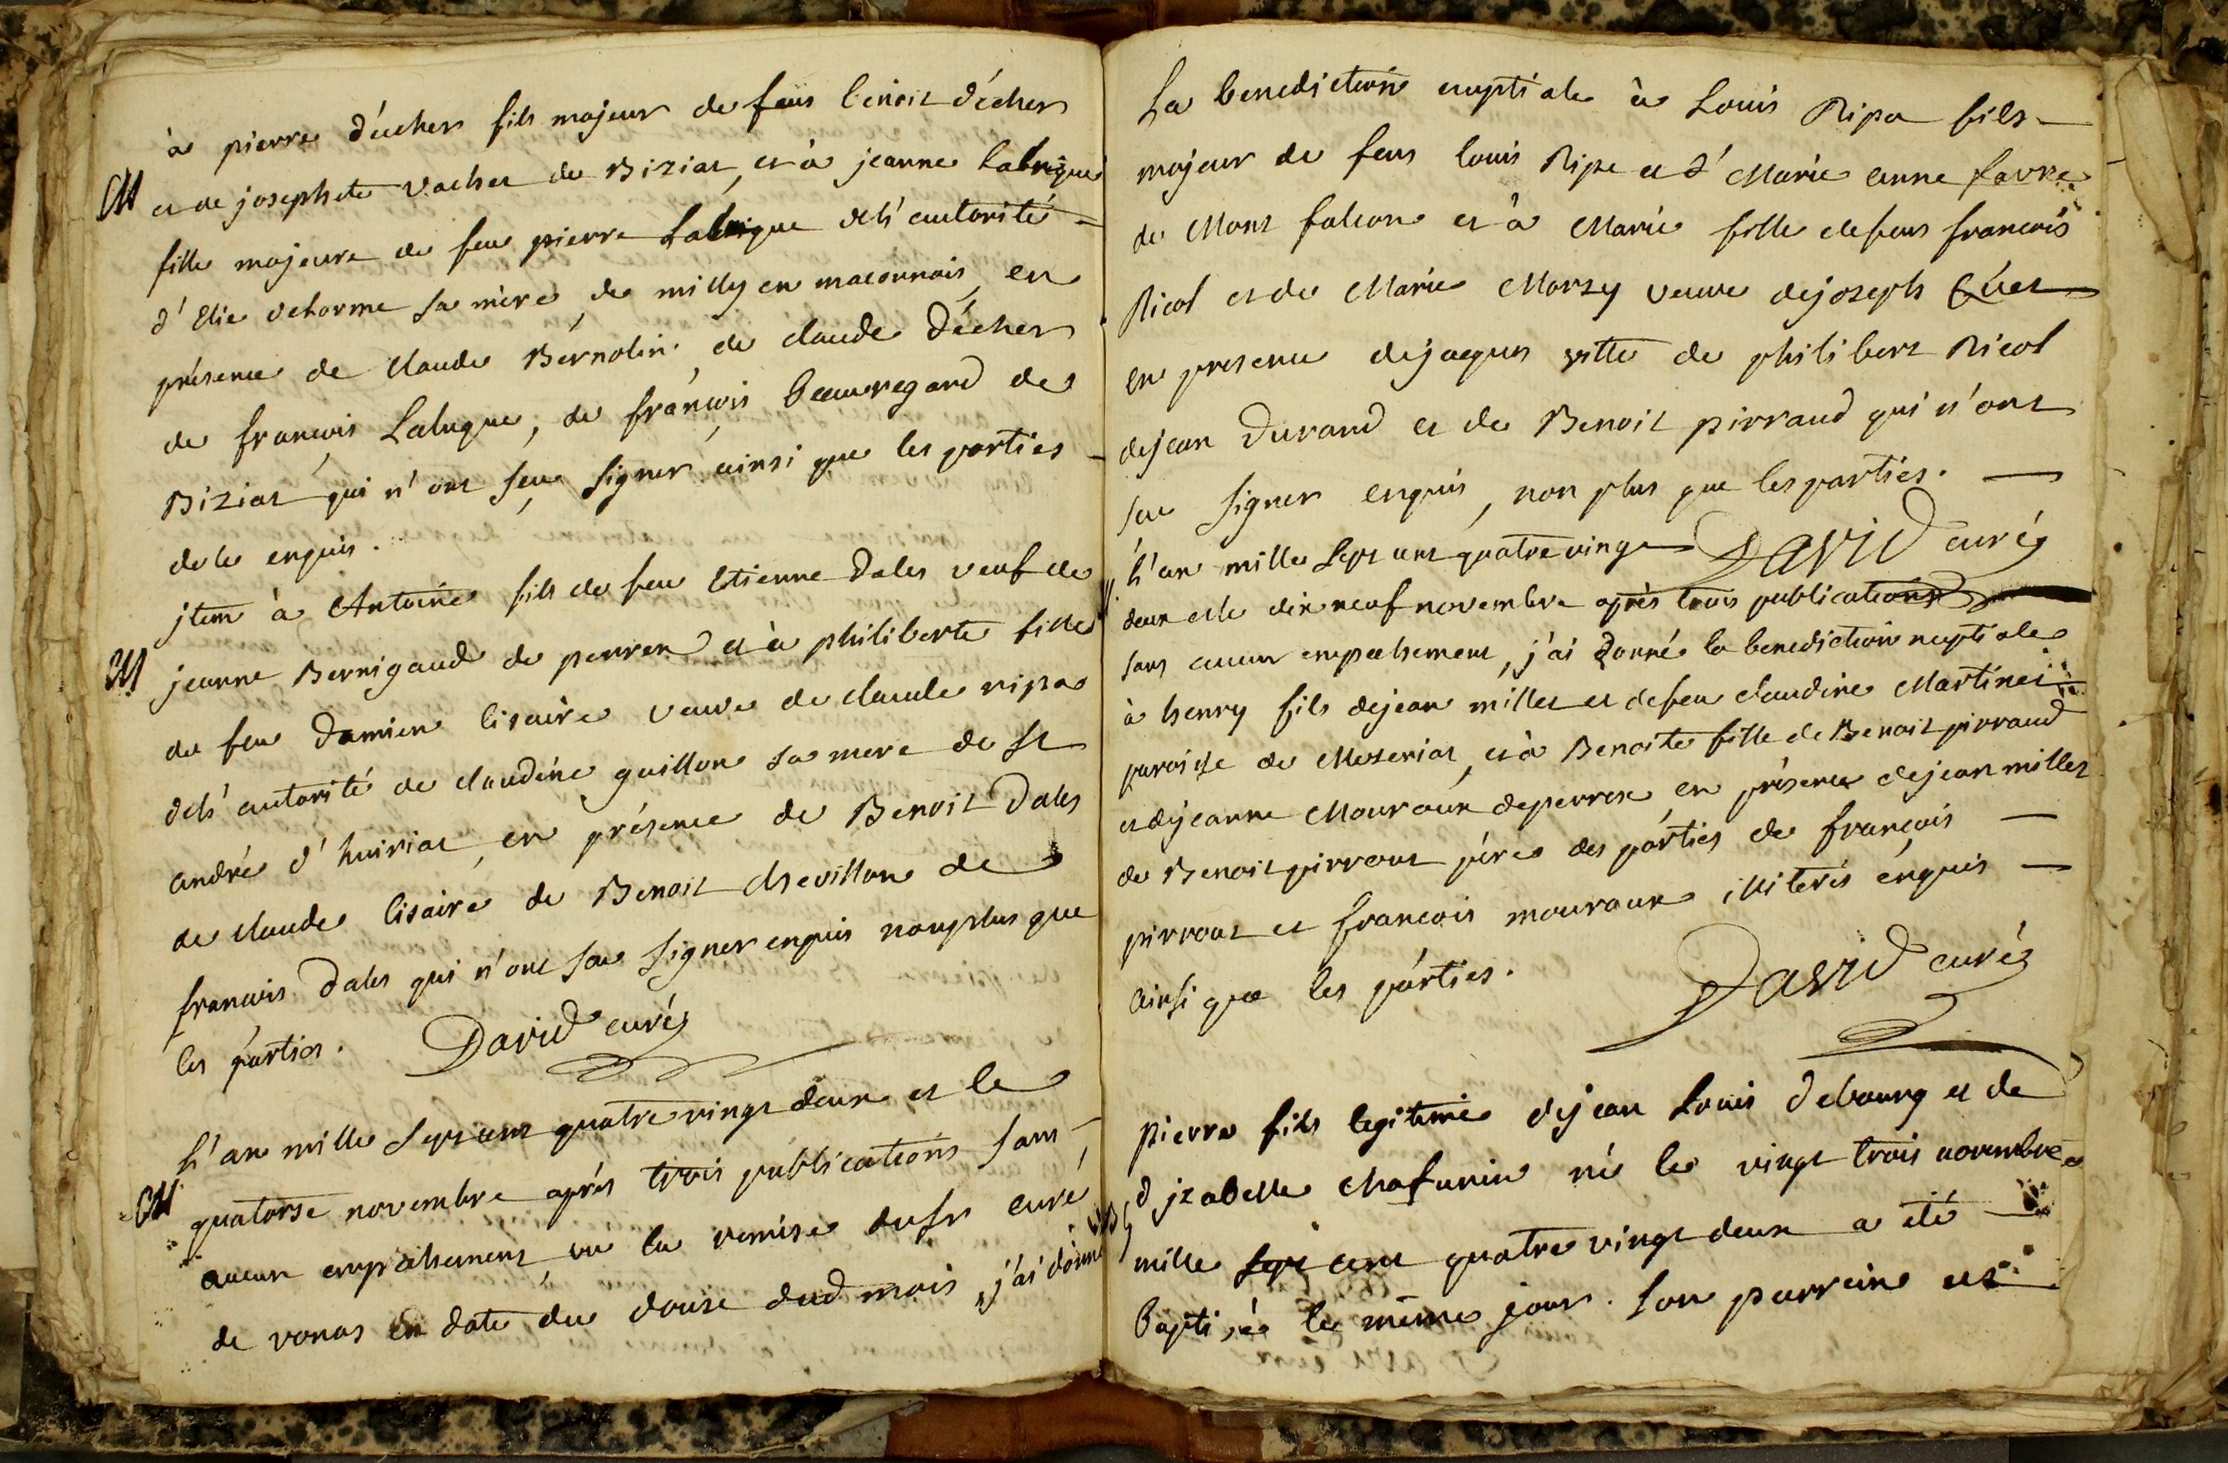 à pierre décher fils majeur de feus benoit décher
M et de josephete vacher de Biziat, et à jeanne Lalugue
fille majeure de feu pierre Lalugue de l'autorité
d'Elie delorme sa mère, de milly en maconnois, en
présence de claude Bernolin, de claude décher
de francois Lalugue, de françois beauregard de
Biziat qui n'ont seu signer ainsi que les parties
de le enquis.
jtem à Antoine fils de feu Etienne Dales veuf de
M jeanne Bernigaud de perrex et à philiberte fille
de feu Damien lisaire veuve de claude ripa
de l'autorité de claudine guillon sa mere de st
andré d'huiriat, en présence de Benoit Dales
de claude lisaire de Benoit chevillon de
francois Dales qui n'ont su signer enquis nonplus que
les parties. David curé
L'an mille sept cent quatre vingt deux et le
M quatorse novembre après trois publications sans
aucun empechement, vu la remise du sr curé
de vonas en date du douse dud mois, j'ai donné
La benediction nuptiale à Louis Ripa fils
majeur de feus louis Ripe et d' Marie anne favre
de Mont falcon et à Marie fille de feus francois
Ricol et de Marie Morzy veuve de joseph
en presence de jaques vitte de philibert Ricol
de jean Durand et de Benoit pirraud qui n'ont
su signer enquis, non plus que les parties.
L'an mille sept cent quatre vingt David curé
deux et le dix neuf novembre après trois publications
sans aucun empechement, j'ai donné la benediction nuptiale
à henry fils de jean millet et de feu claudine Martinet
paroisse de Meseriat, et à Benoite fille de Benoit pirraud
et de jeanne Mouraux de perrex en présence de jean millet
de Benoit pirrout père des parties de françois
pirrout et francois mouraux illiterés enquis
ainsi que les parties. David curé
pierre fils legitime de jean Louis debourg et de
d jzabelle Chafurin né le vingt trois novembre
mille sept cent quatre vingt deux a été
baptisé le même jour. son parrain est